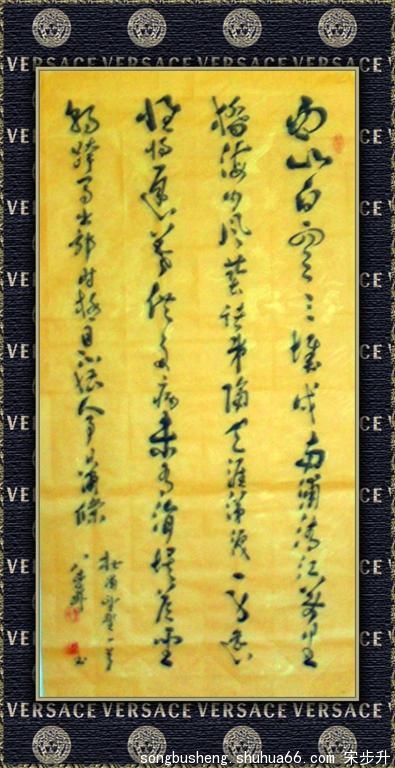 VERSACE VERSACE VERSACE VERSACE
西山白雪三城戍南浦清江萬里
橋海内风塵诸弟隔天涯涕淚一身遥
惟将遲暮供多病未有涓埃答聖
朝跨马出郊时极目不堪人事日萧條
杜甫野望一首
步升
VERSACE VERSACE VERSACE VERSACE
songbusheng.shuhua66.com 宋步升